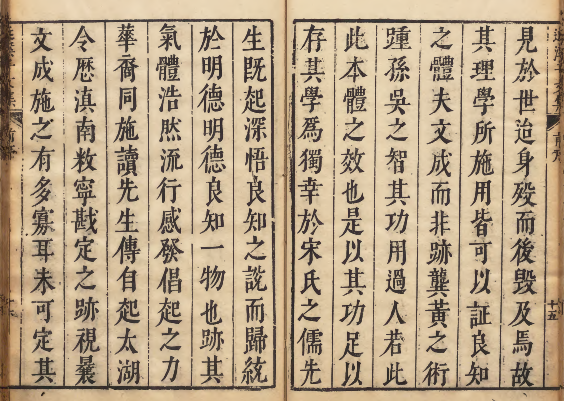 見於世迨身歿而後毀及焉故
其理學所施用皆可以証良知
之體夫文成而非跡龔黃之術
踵孫吳之智其功用過人若此
此本體之效也是以其功足以
存其學爲獨幸於宋氏之儒先
十五
生旣起深悟良知之說而歸統
於明德明德良知一物也跡其
氣體浩然流行感發倡起之力
華裔同施讀先生傳自起太湖
令歷滇南敉寧戡定之跡視曩
文成施之有多寡耳未可定其